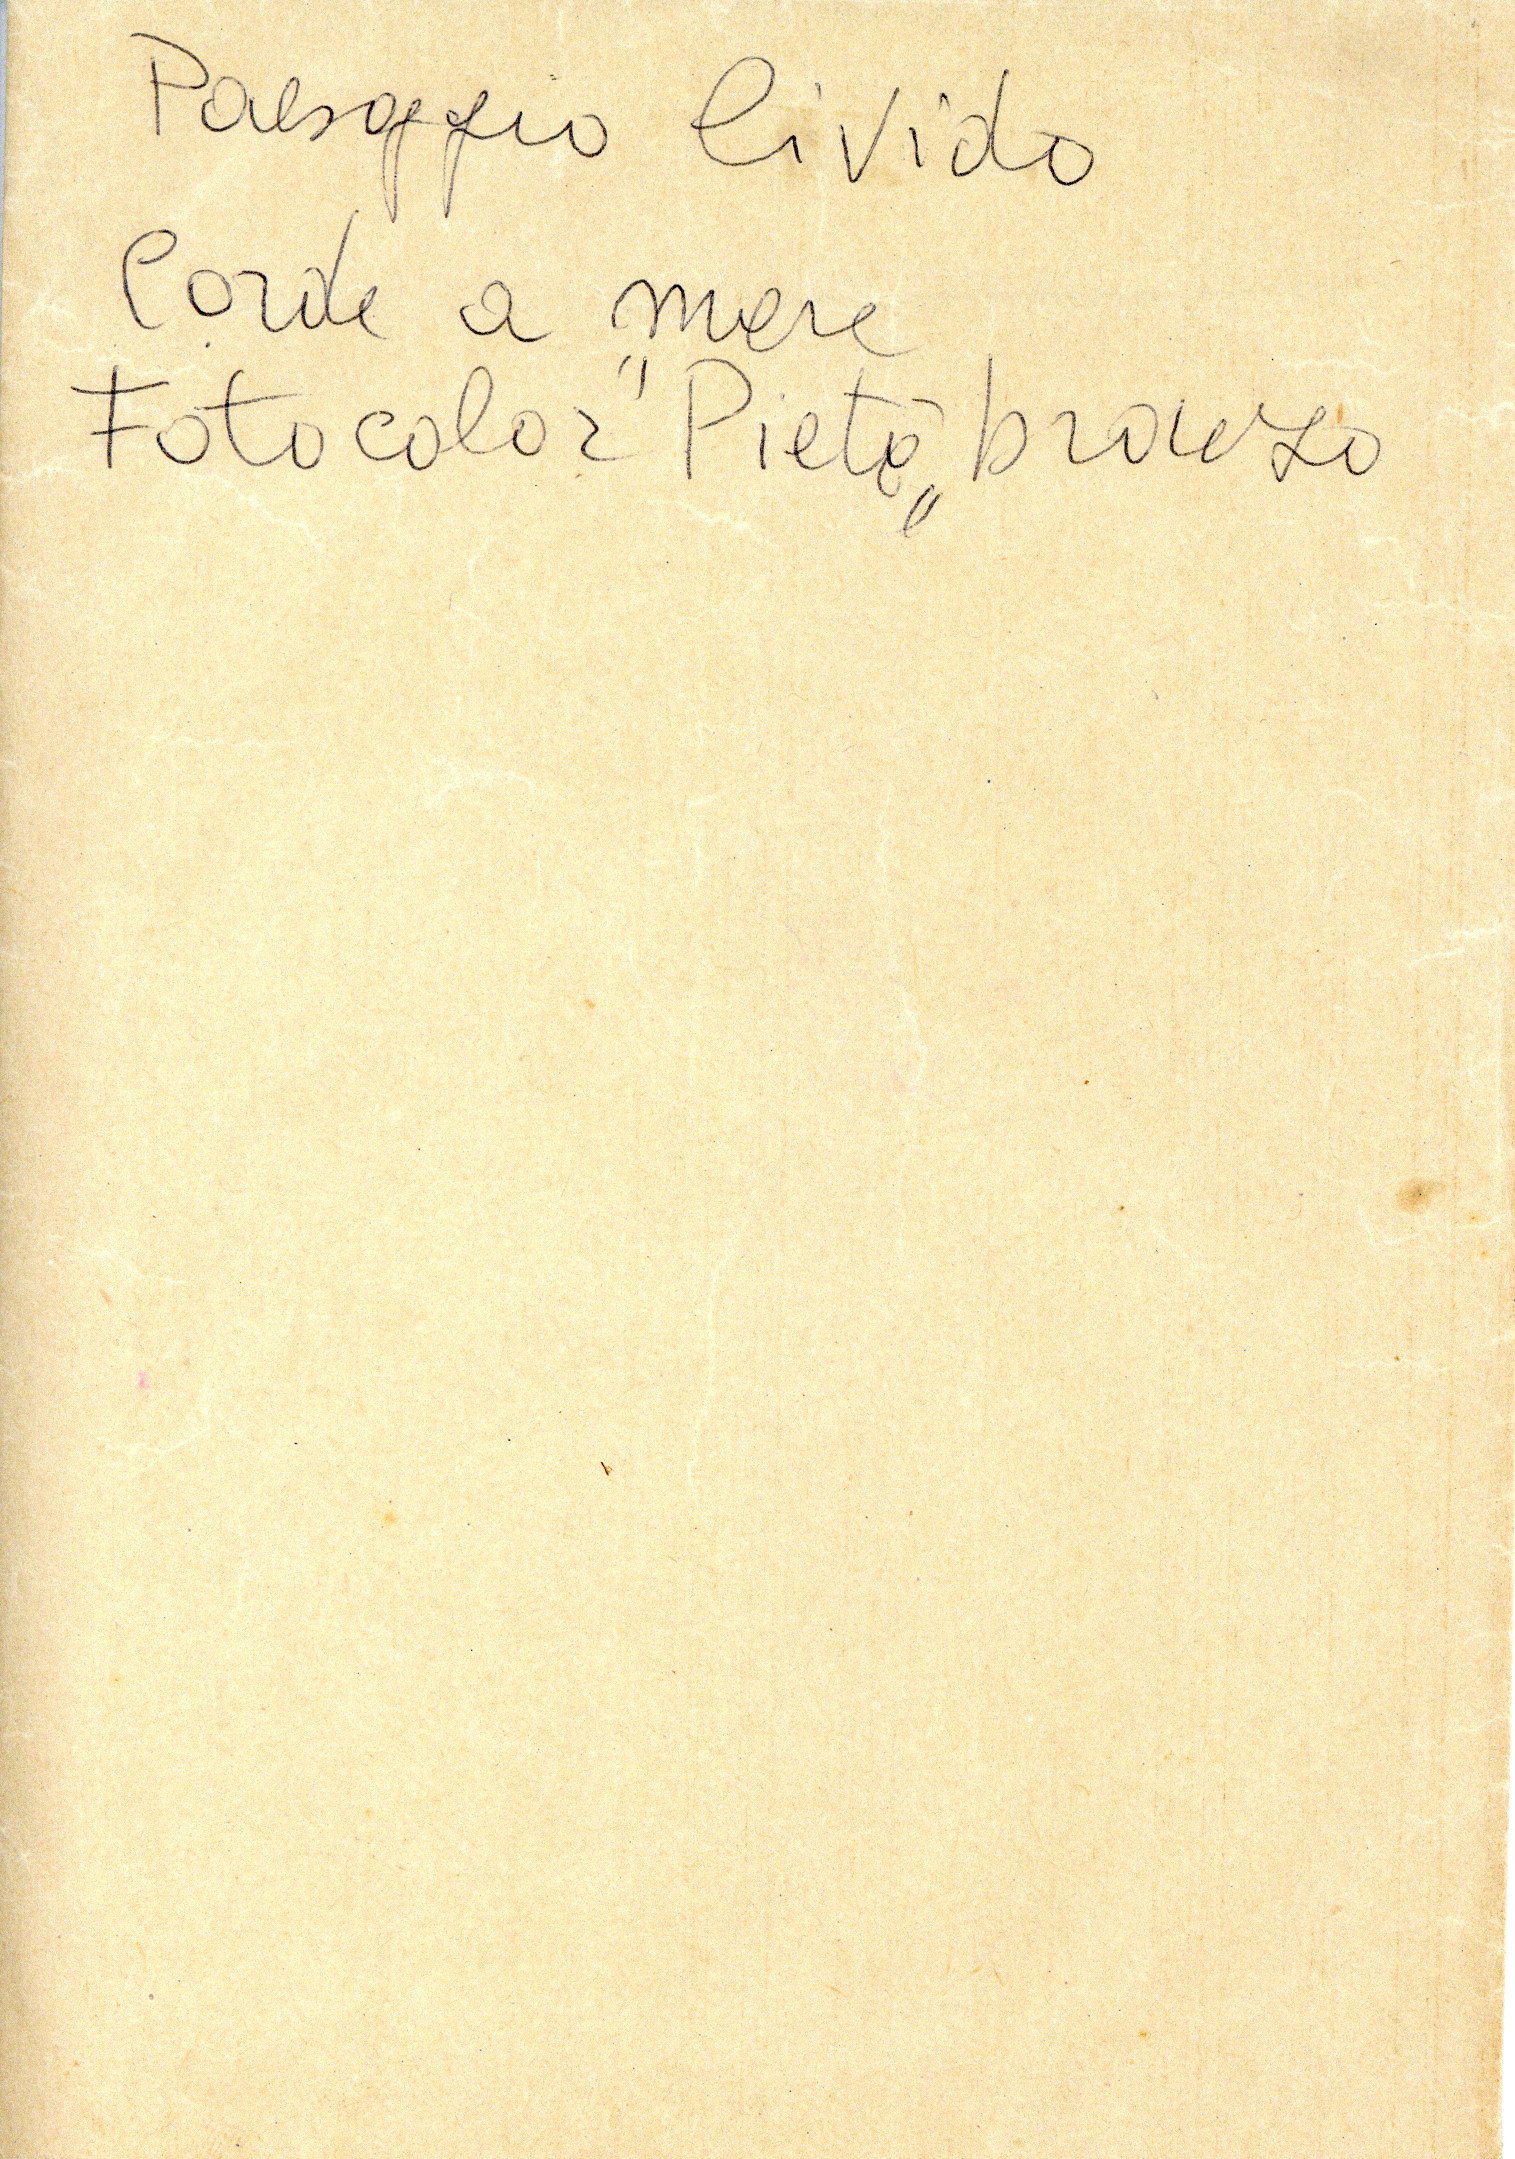 Paesaggio livido
Corde a mare
Fotocolor "Pietà" bronzo